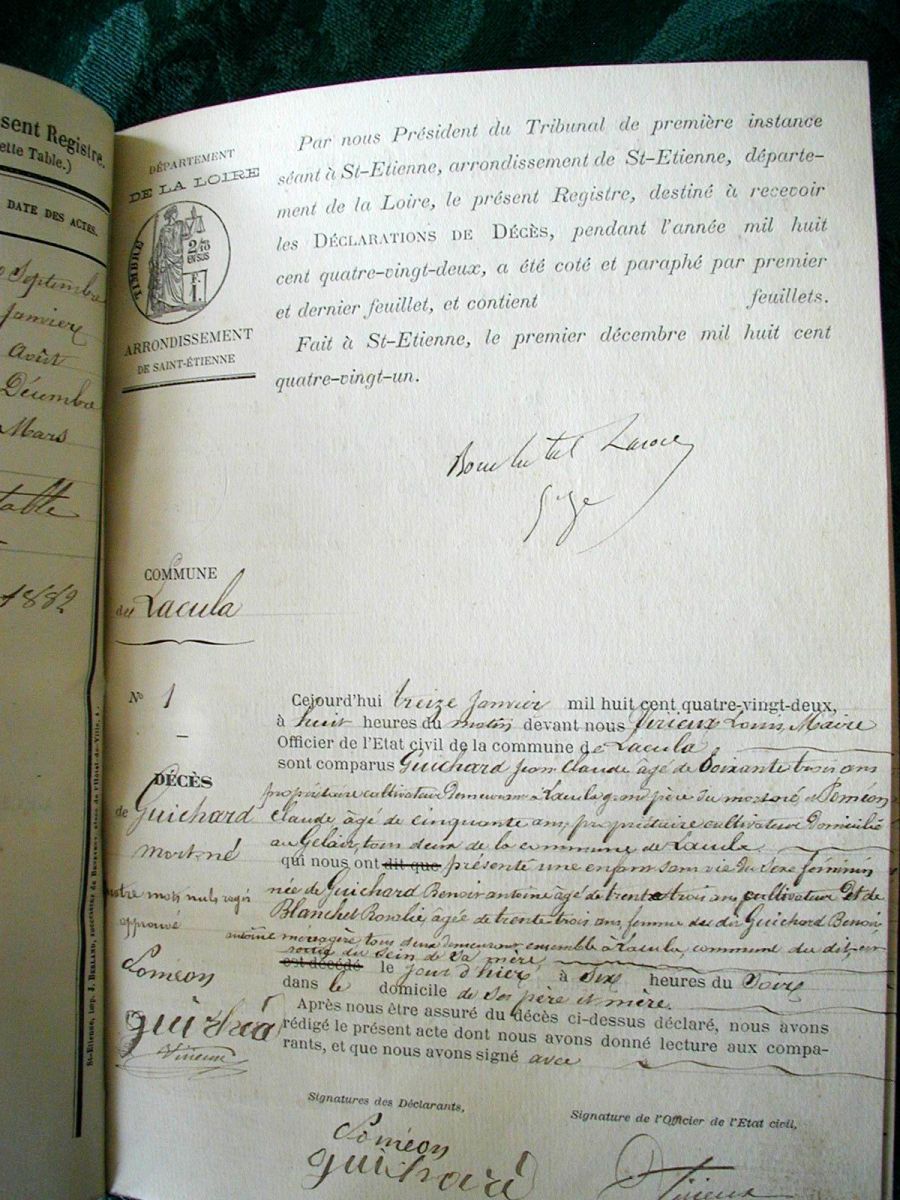 sent Registre.
ette Table.)
DATE DES ACTES.
Septembre
Janvier
Août
Décembre
Mars
1882
St-Etienne, imp. J. BERLAND,
DÉPARTEMENT
DE LA LOIRE
TIMBRE
2/10
EN SUS
F.
1.
ARRONDISSEMENT
DE SAINT-ÉTIENNE
Par nous Président du Tribunal de première instance
séant à St-Etienne, arrondissement de St-Etienne, départe-
ment de la Loire, le présent Registre, destiné à recevoir
les DÉCLARATIONS DE DÉCÈS, pendant l'année mil huit
cent quatre-vingt-deux, a été coté et paraphé par premier
et dernier feuillet, et contient feuillets.
Fait à St-Etienne, le premier décembre mil huit cent
quatre-vingt-un.
COMMUNE
de Lacula
N° 1
DÉCÈS
de Guichard
mort né
quatre mots nuls rayés
approuvé
Soméon
guichard
Virieux
Cejourd'hui treize Janvier mil huit cent quatre-vingt-deux,
à huit heures du matin devant nous Virieux Louis, Maire
Officier de l'Etat civil de la commune de Lacula
sont comparus Guichard Jean Claude âgé de Soixante trois ans
propriétaire cultivateur demeurant à Lacula grand père du mort né et Soméon
Claude âgé de cinquante ans, propriétaire cultivateur domicilié
au tous deux de la commune de Lacula
qui nous ont dit que présenté une enfant sans vie du Sexe féminin
née de Guichard Benoit antoine âgé de trente trois ans cultivateur Et de
Blanchet Rosalie, agée de trente trois ans, femme du dit Guichard Benoit
antoine ménagère, tous deux demeurant ensemble à Lacula, commune du dit,
sortie du sein de Sa mère
est décédé le jour d'hier à six heures du Soir
dans le domicile de Ses père et mère
Après nous être assuré du décès ci-dessus déclaré, nous avons
rédigé le présent acte dont nous avons donné lecture aux compa-
rants, et que nous avons signé avec
Signatures des Déclarants,
Signature de l'Officier de l'Etat civil,
Soméon
guichard
Virieux